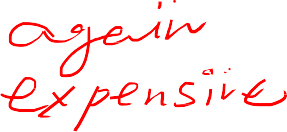 again
expensive